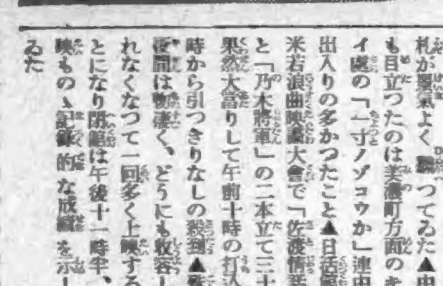 札が景氣よく つてゐた▲中
も目立つたのは美濃町方面のキ
イ處の「一寸ノゾコウか」連中
出入りの多かつたこと▲日活館
米若浪曲映畫大會で「佐渡情話
と「乃木將軍」の二本立て三十
果然大當りして午前十時の打込
時から引つきりなしの殺到▲
夜間は物凄く、どうにも收容し
れなくなつて一回多く上映する
とになり閉館は午後十一時半、
映もの丶記錄的な成績を示し
ゐた